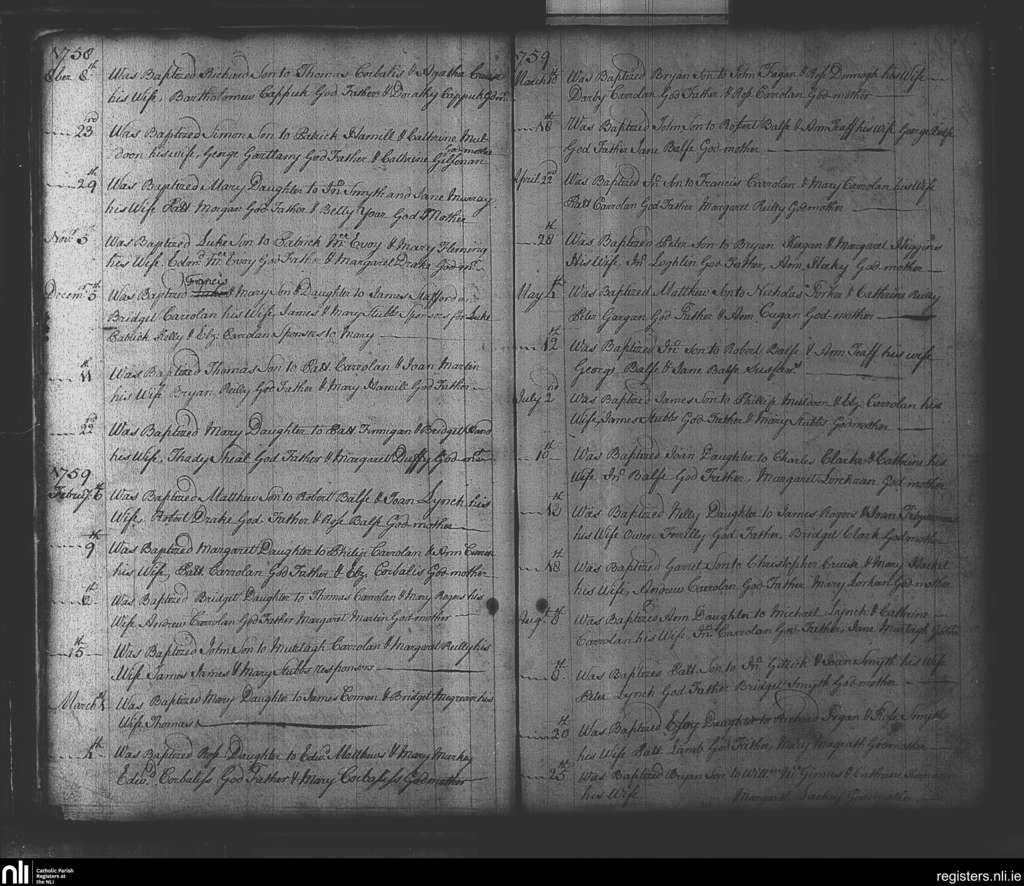 1758
8ber 8th Was Baptized Richard Son to Thomas Corbalis & Agatha
his Wife, Bartholomew Cappuck God Father & Dorathy Cappuck
23rd Was Baptized Simon Son to Patrick Hamill & Catherine Mul
doon his wife, George Gartlany God Father & Cathrine Godmother
29th Was Baptized Mary Daughter to Jno Smyth and Jane Murray
his Wife Patt Morgan God Father & Betty Your God Mother
Novr 5th Was Baptized Luke Son to Patrick McEvoy & Mary Fleming
his Wife. Edmd McEvoy God Father & Margaret Drake God mr
Francis
Decemr 5th Was Baptized Luke & Mary Son & Daughter to James Stafford &
Bridget Carrolan his Wife, James & Mary Stubbs Sponsors for Luke
Patrick Kelly & Elz. Carrolan Sponsors to Mary
11th Was Baptized Thomas Son to Patt Carrolan & Joan Martin
his Wife Bryan Reilly God Father & Mary Hamill God Father
22nd Was Baptized Mary Daughter to Patt Finnigan & Bridget
his Wife, Thady Sheal God Father & Margaret Duffy God
1759
Febry 6th Was Baptized Matthew Son to Robert Balfe & Joan Lynch his
Wife, Robert Drake God Father & Rose Balfe God mother
9th Was Baptized Margaret Daughter to Philip Carrolan & Ann
his Wife, Patt Carrolan God Father & Elz. Corbalis God mother
Was Baptized Bridget Daughter to Thomas Carrolan & Mary Rogers his
Wife Andrew Carrolan God Father Margaret Martin God mother
15th Was Baptized John Son to Murtagh Carrolan & Margaret Reilly his
Wife James James & Mary Stubbs responsors
March Was Baptized Mary Daughter to James Connon & Bridget his
Wife Thomas
4th Was Baptized Rose Daughter to Edwd Matthews & Mary Markey
Edwd Corbaliss God Father & Mary Corbaliss Godmother
1759
March Was Baptized Bryan Son to John Fagan & Rose his Wife
Darby Carrolan God Father & Rose Carrolan God mother
18th Was Baptized John Son to Robert Balfe & Ann Teaff his wife George Balfe
God Father Jane Balfe God mother
April 22nd Was Baptized Jno Son to Francis Carrolan & Mary Carrolan his Wife
Patt Carrolan God Father Margaret Reilly Godmother
28th Was Baptized Peter Son to Bryan Keegan & Margaret Higgins
His Wife, Jno Loghlin God Father, Ann God mother
May Was Baptized Matthew Son to Nicholas & Cathrine Reilly
Peter Gargan God Father & Ann Cugan God mother
12th Was Baptized Jno Son to Robert Balfe & Ann Teaff his wife
George Balfe & Jane Balfe
July 2nd Was Baptized James Son to Phillip Muldoon & Elz. Carrolan his
Wife, James Stubbs God Father & Mary Stubbs Godmother
15th Was Baptized Joan Daughter to Charles Clarke & Cathrine his
Wife Jno Balfe God Father, Margaret God mother
12th Was Baptized Nelly Daughter to James Rogers & Joan
his Wife Owen God Father, Bridget Clark God mother
18th Was Baptized Garret Son to Christopher Cruise & Mary Hacket
his Wife, Andrew Carrolan God Father Mary Godmother
Augst 8th Was Baptized Ann Daughter to Michael Lynch & Cathrine
Carrolan his Wife Jno Carrolan God Father, Jane Murtagh
Was Baptized Patt Son to Jno Gillick & Joan Smyth his Wife
Peter Lynch God Father Bridget Smyth God mother
20th Was Baptized Daughter to Richard Fegan & Rose Smyth
his Wife Patt Lamb God Father, Mary Magrath Godmother
25th Was Baptized Bryan Son to Willm McGinnis & Cathrine
his Wife Margaret Godmother
nli Catholic Parish
Registers at
the NLI
registers.nli.ie